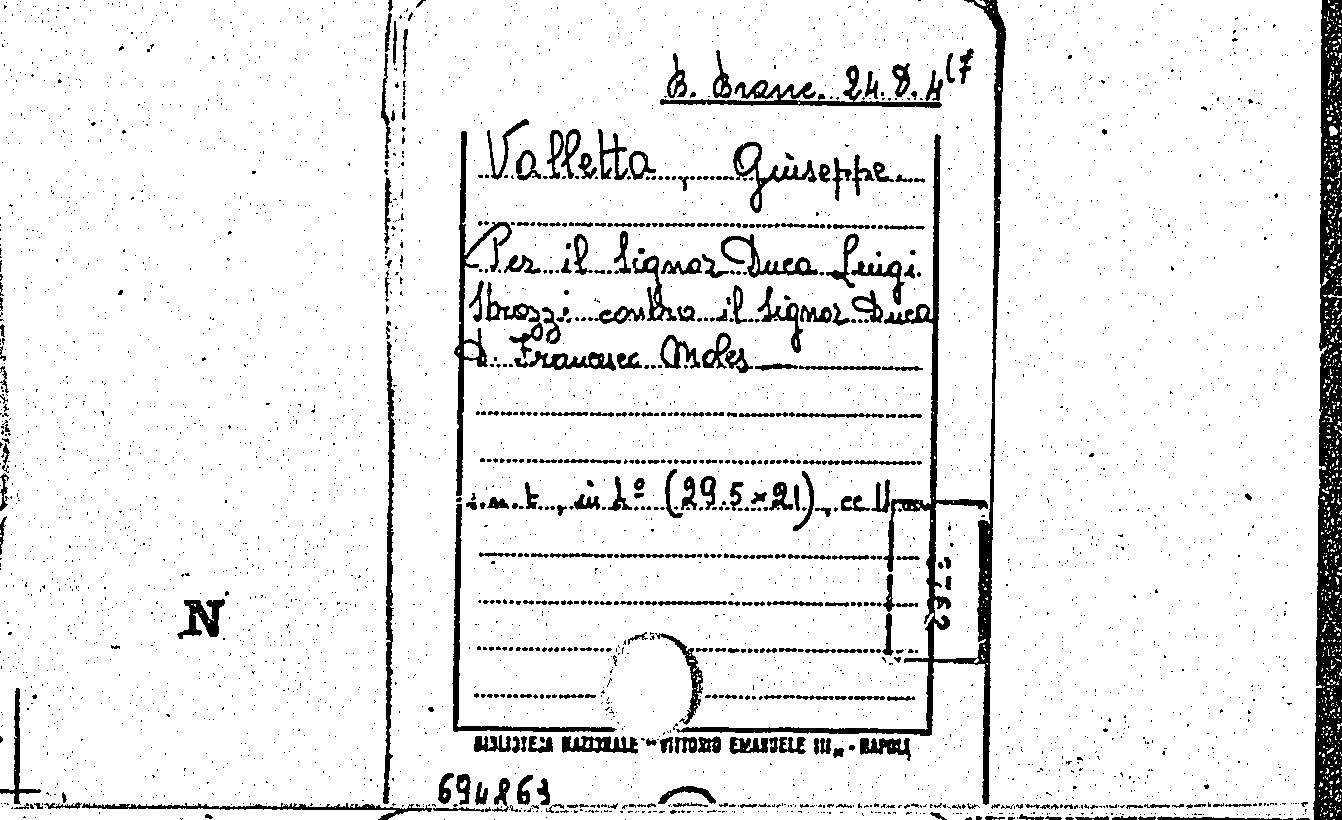 B. Branc. 24.D.4(7
Valletta, Giuseppe.
Per il Signor Duca Luigi
Strozzi contro il Signor Duca
D. Francesco Moles
s.n.t., in 4º (29.5×21), cc
N
BIBLIOTECA NAZIONALE "VITTORIO EMANUELE III" - NAPOLI
694863